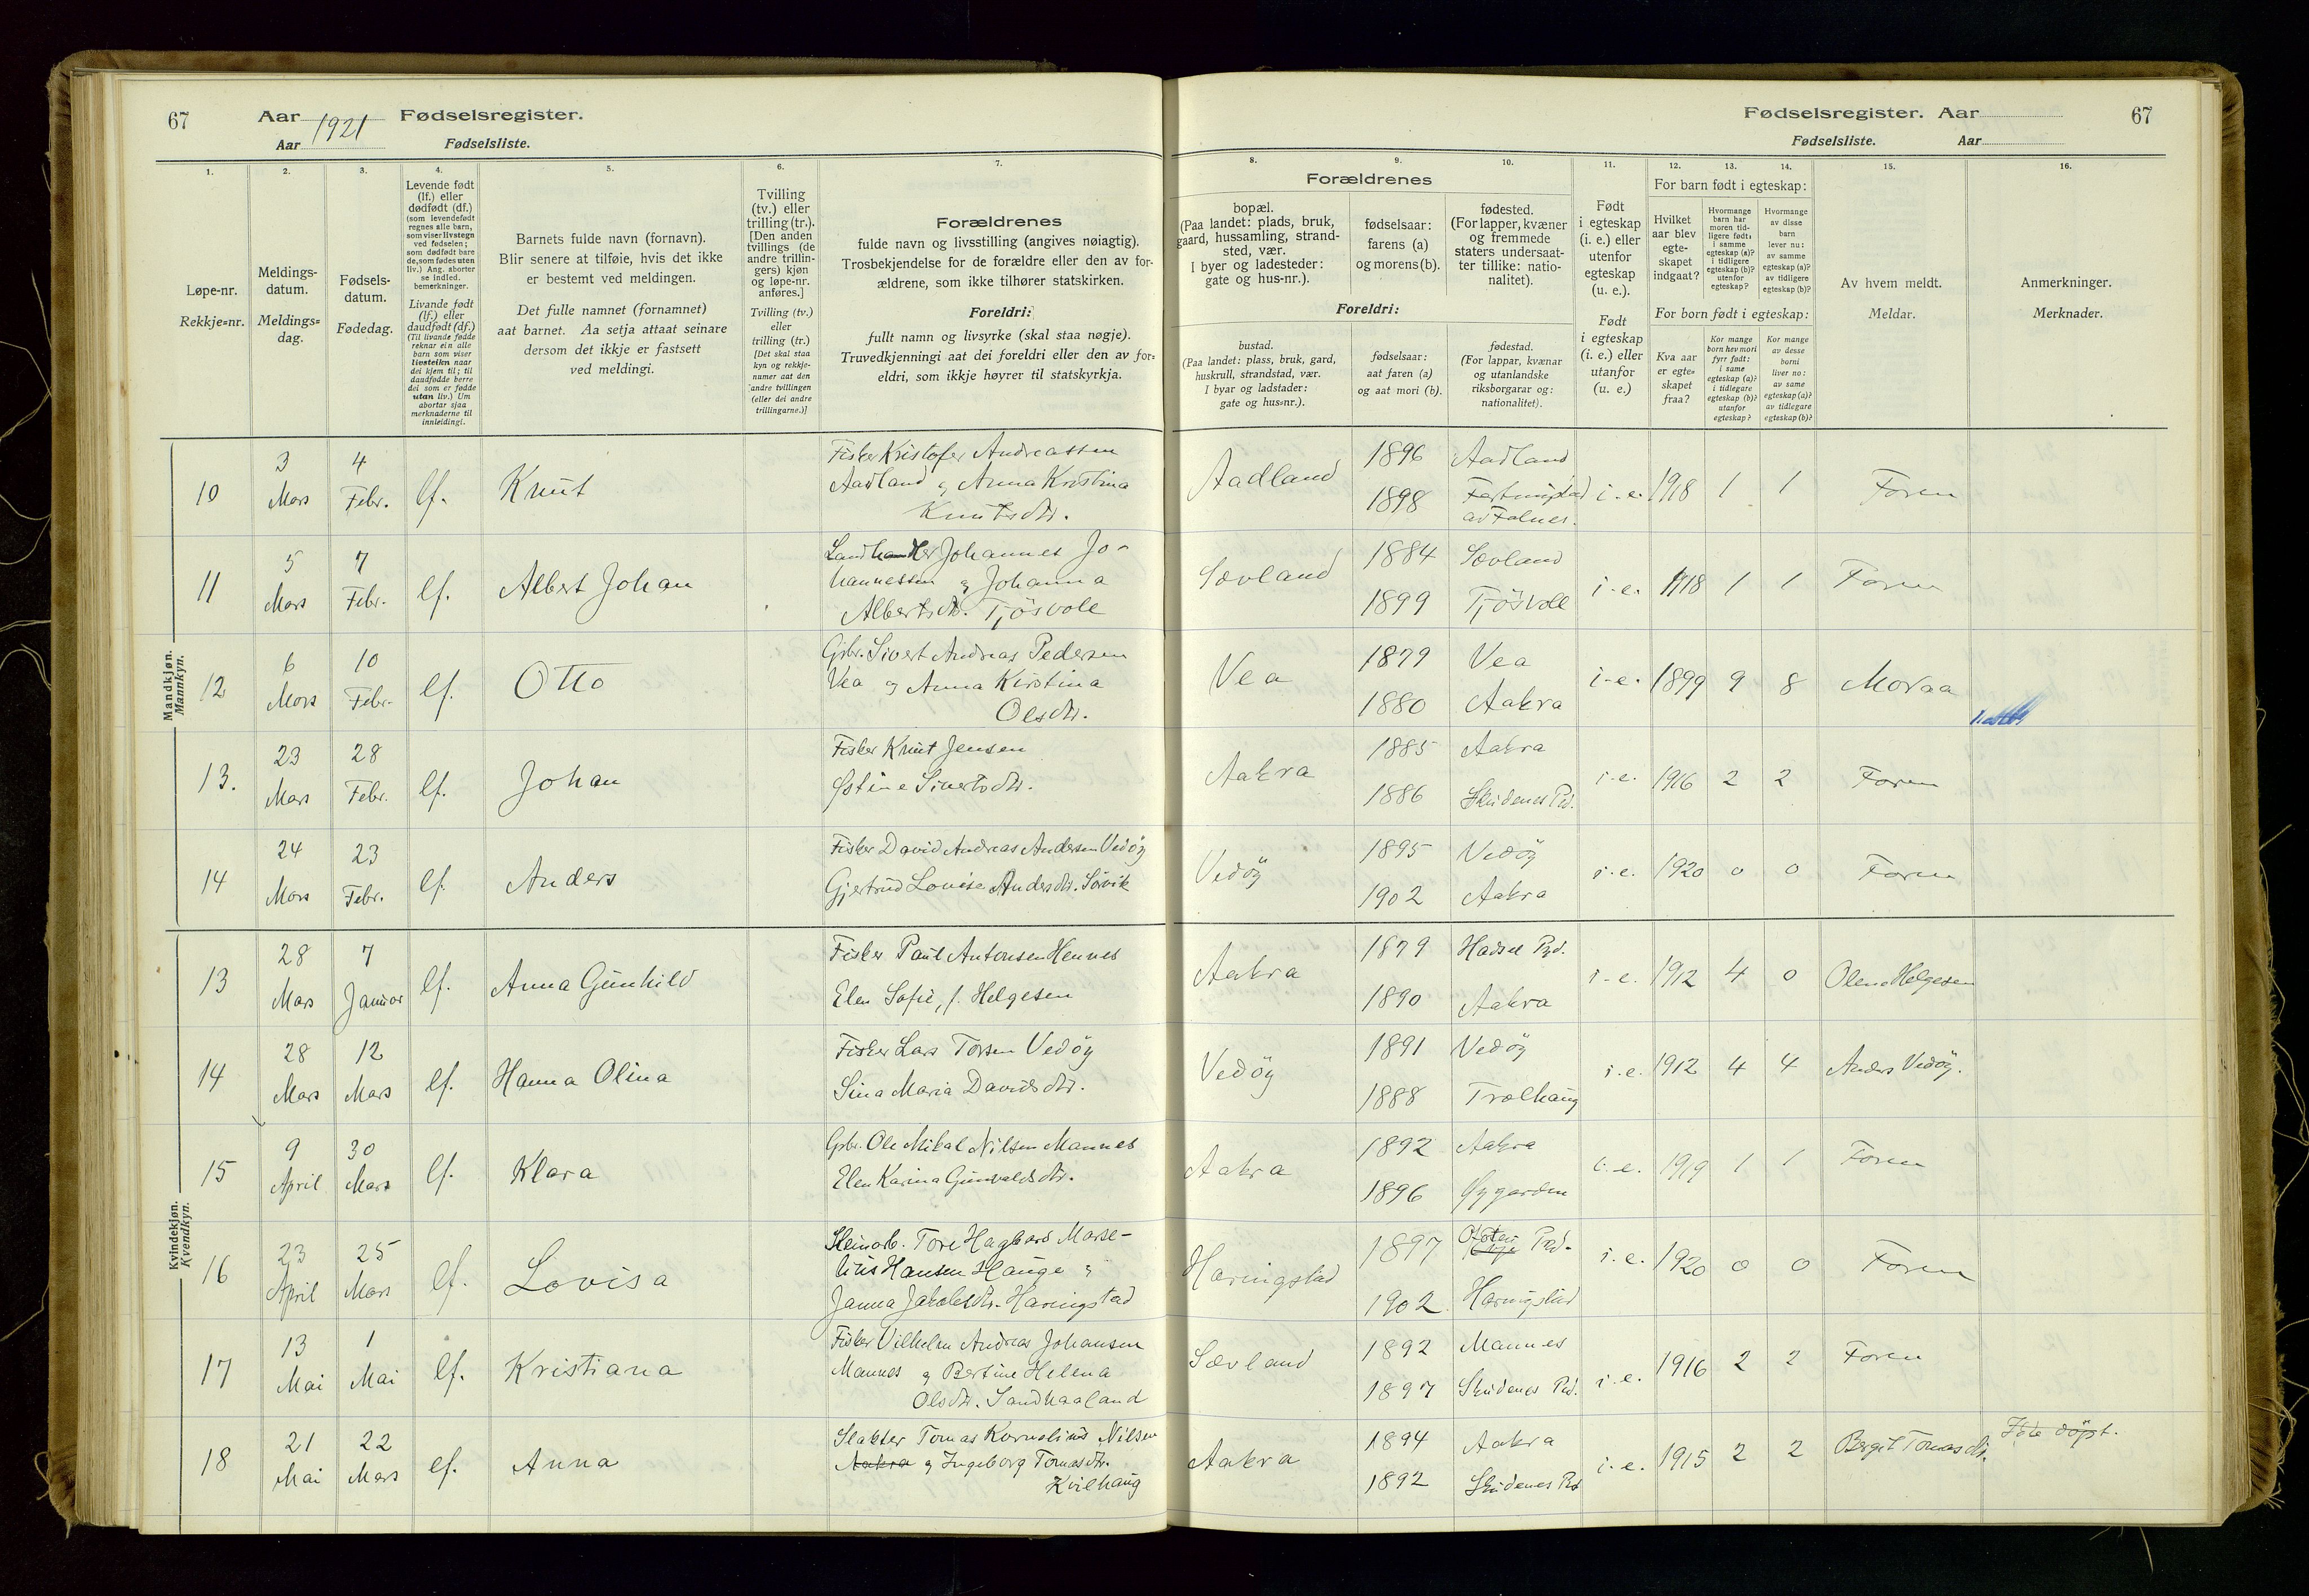 67 Aar 1921 Fødselsregister.
Aar Fødselsliste.
Fødselsregister. Aar 67
Fødselsliste. Aar
1.
Løpe-nr.
Rekkje=nr.
2.
Meldings-
datum.
Meldings=
dag.
3.
Fødsels-
datum.
Fødedag.
4.
Levende født
(lf.) eller
dødfødt (df.)
(som levendefødt
regnes alle barn,
som viser livstegn
ved fødselen;
som dødfødt bare
de, som fødes uten
liv.) Ang. aborter
se indled.
bemerkninger.
Livande født
(lf.) eller
daudfødt (df.)
(Til livande fødde
reknar ein alle
barn som viser
livsteikn naar
dei kjem til; til
daudfødde berre
dei som er fødde
utan liv.) Um
abortar sjaa
merknaderne til
innleidingi.
5.
Barnets fulde navn (fornavn).
Blir senere at tilføie, hvis det ikke
er bestemt ved meldingen.
Det fulle namnet (fornamnet)
aat barnet. Aa setja attaat seinare
dersom det ikkje er fastsett
ved meldingi.
6.
Tvilling
(tv.) eller
trilling (tr.).
[Den anden
tvillings (de
andre trillin-
gers) kjøn
og løpe-nr.
anføres.]
Tvilling (tv.)
eller
trilling (tr.)
[Det skal staa
kyn og rekkje-
numer aat den
andre tvillingen
(eller dei andre
trillingarne.)]
7.
Forældrenes
fulde navn og livsstilling (angives nøiagtig).
Trosbekjendelse for de forældre eller den av for-
ældrene, som ikke tilhører statskirken.
Foreldri:
fullt namn og livsyrke (skal staa nøgje).
Truvedkjenningi aat dei foreldri eller den av for=
eldri, som ikkje høyrer til statskyrkja.
8.
Forældrenes
bopæl.
(Paa landet: plads, bruk,
gaard, hussamling, strand-
sted, vær.
I byer og ladesteder:
gate og hus-nr.).
Foreldri:
bustad.
(Paa landet: plass, bruk, gard,
huskrull, strandstad, vær.
I byar og ladstader:
gate og hus=nr.).
9.
fødselsaar:
farens (a)
og morens (b).
fødselsaar:
aat faren (a)
og aat mori (b).
10.
fødested.
(For lapper, kvæner
og fremmede
staters undersaat-
ter tillike: natio-
nalitet).
fødestad.
(For lappar, kvænar
og utanlandske
riksborgarar og:
nationalitet).
11.
Født
i egteskap
(i. e.) eller
utenfor
egteskap
(u. e.).
Født
i egteskap
(i. e.) eller
utanfor
(u. e.)
12.
For barn født i egteskap:
Hvilket
aar blev
egte-
skapet
indgaat?
For born født i egteskap:
Kva aar
er egte=
skapet
fraa?
13.
Hvormange
barn har
moren tid-
ligere født:
i samme
egteskap (a)?
i tidligere
egteskap (b)?
utenfor
egteskap?
Kor mange
born hev mori
fyrr født:
i same
egteskap (a)?
i tidlegare
egteskap (b)?
utanfor
egteskap?
14.
Hvormange
av disse
barn
lever nu:
av samme
egteskap (a)?
av tidligere
egteskap (b)?
Kor mange
av desse
borni
liver no:
av same
egteskap (a)?
av tidlegare
egteskap (b)?
15.
Av hvem meldt.
Meldar.
16.
Anmerkninger.
Merknader.
Mandkjøn.
Mannkyn.
10 3 Mars 4 Febr. lf. Knut
Fisker Kristofer Andreassen
Aadland og Anna Kristina
Knutsdtr.
Aadland 1896 Aadland
1898 av Falnes.
i.e. 1918 1 1 Faren
11 5 Mars 7 Febr. lf. Albert Johan
Landhandler Johannes Jo-
hannessen og Johanna
Albertsdtr. Tjösvole
Sævland 1884 Sævland
1899 Tjösvoll
i.e. 1918 1 1 Faren
12 6 Mars 10 Febr. lf. Otto
Gbr. Sivert Andreas Pedersen
Vea og Anna Kirstina
Olsdtr.
Vea 1879 Vea
1880 Aakra
i.e. 1899 9 8
13. 23 Mars 28 Febr. lf. Johan
Fisker Knut Jensen
Østine Sivertsdtr.
Aakra 1885 Aakra
1886 Skudenes Pd.
i.e. 1916 2 2 Faren
14 24 Mars 23 Febr. lf. Anders
Fisker David Andreas Andersen Vedöy
Gjertrud Lovise Andersdtr. Sövik
Vedöy 1895 Vedöy
1902 Aakra
i.e. 1920 0 0 Faren
Kvindekjøn.
Kvendkyn.
13 28 Mars 7 Januar lf. Anna Gunhild
Fisker Paul Antonsen Hennes
Elen Sofie, f. Helgesen
Aakra 1879 Hadsel Pgd.
1890 Aakra
i.e. 1912 4 0 Olene Helgesen
14 28 Mars 12 Mars lf. Hanna Olina
Fisker Lars Torsen Vedöy
Sina Maria Davidsdtr.
Vedöy 1891 Vedöy
1888 Trælhaug
i.e. 1912 4 4 Anders Vedöy.
15 9 April 30 Mars lf. Klara
Gbr. Ole Mikal Nilsen Mannes
Elen Karina Gunvaldsdtr.
Aakra 1892 Aakra
1896 Øygarden
i.e. 1919 1 1 Faren
16 23 April 25 Mars lf. Lovisa
Steinarb. Tore Hagbart Marse-
lius Hansen Hauge og
Janna Jakobsdtr. Haringstad
Haringstad 1897 Ofoten Pd.
1902 Haringstad
i.e. 1920 0 0 Faren
17 13 Mai 1 Mai lf. Kristiana
Fisker Vilhelm Andreas Johansen
Mannes og Bertine Helena
Olsdtr. Sandhaaland
Sævland 1892 Mannes
1897 Skudenes Pd.
i.e. 1916 2 2 Faren
18 21 Mai 22 Mars lf. Anna
Slakter Tomas Kornelius Nilsen
Aakra og Ingeborg Tomasdtr.
Kvilhaug
Aakra 1894 Aakra
1892 Skudenes Pd
i.e. 1915 2 2 Bergit Tomasdtr.
Ikke döpt.